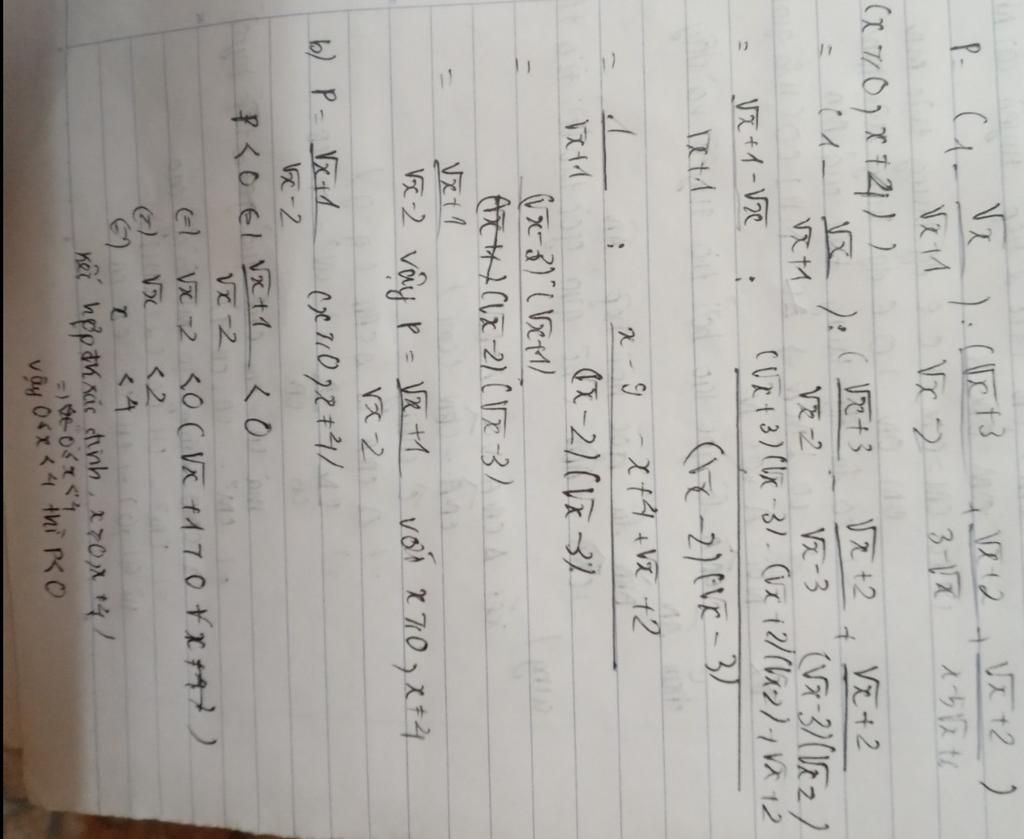 P = (1 - √x/(√x+1)) : ((√x+3)/(√x-2) + (√x+2)/(3-√x) + (√x+2)/(x-5√x+6))
(x ≥ 0, x ≠ 4)
= (1 - √x/(√x+1)) : ((√x+3)/(√x-2) - (√x+2)/(√x-3) + (√x+2)/((√x-3)(√x-2)))
= (√x+1-√x)/(√x+1) : ((√x+3)(√x-3) - (√x+2)(√x-2) + √x+2)/((√x-2)(√x-3))
= 1/(√x+1) : (x-9-x+4+√x+2)/((√x-2)(√x-3))
= (√x-3)(√x+1)/((√x-2)(√x-3))
= (√x+1)/(√x-2) vậy P = (√x+1)/(√x-2) với x ≥ 0, x ≠ 4
b) P = (√x+1)/(√x-2) (x ≥ 0, x ≠ 4)
P < 0 (=) (√x+1)/(√x-2) < 0
(=) √x-2 < 0 (√x+1 > 0 ∀x)
(=) √x < 2
(=) x < 4
kết hợp đk xác định x ≥ 0, x ≠ 4
=) 0 ≤ x < 4
vậy 0 ≤ x < 4 thì P < 0